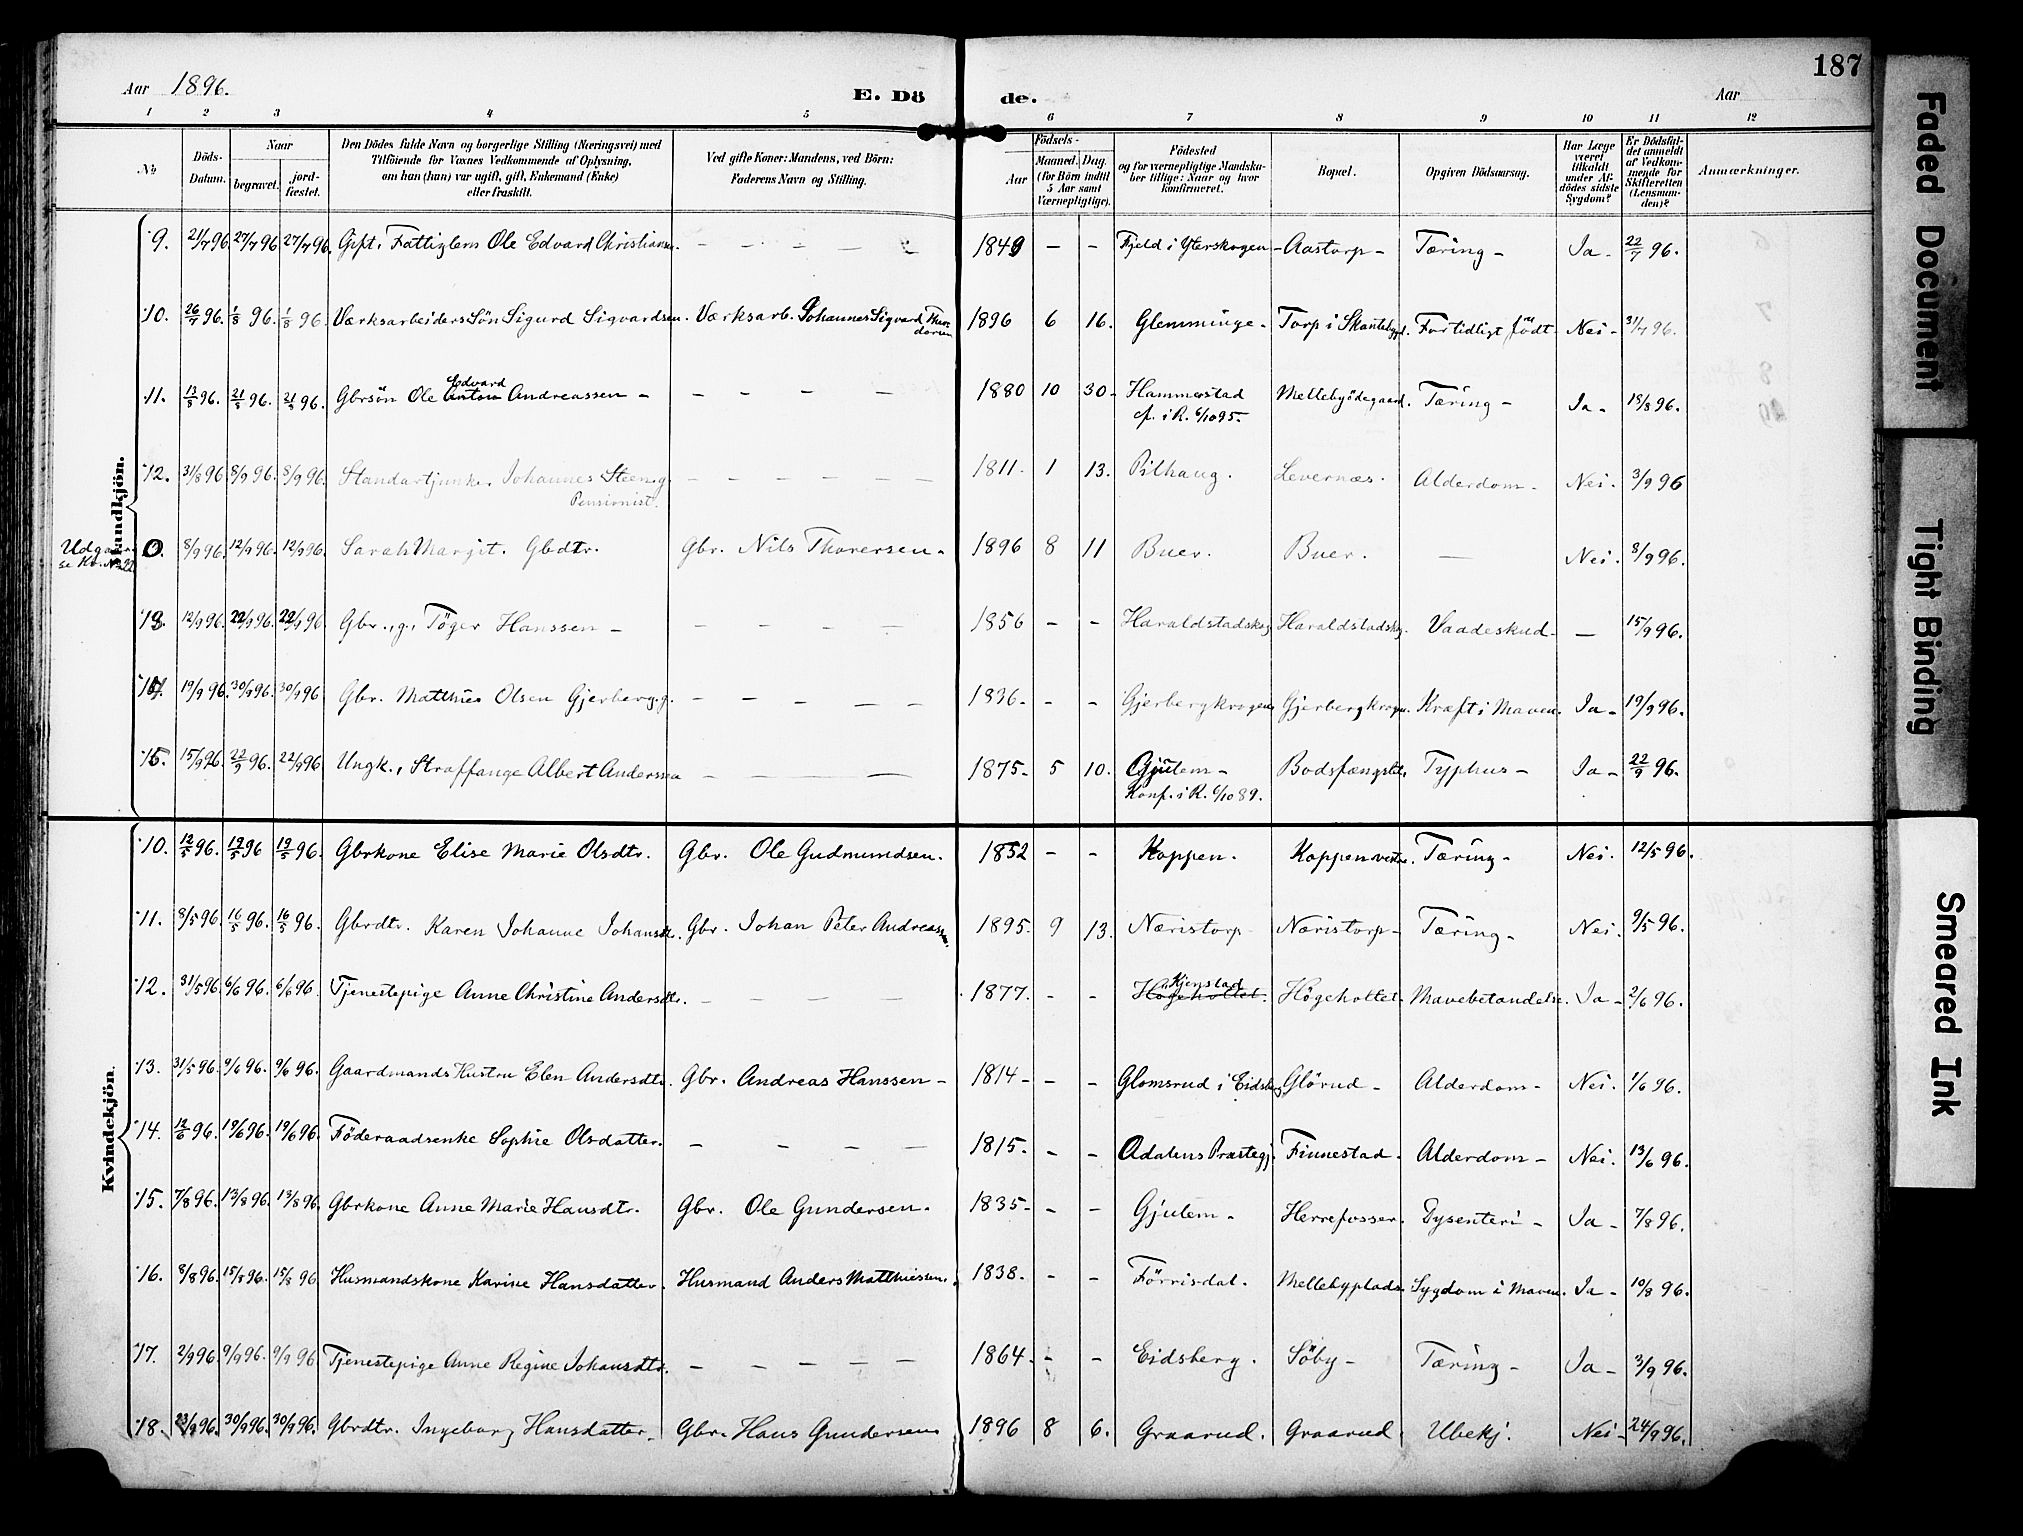 187
Aar 1896.
E. Döde.
Aar
1 2 3 4 5 6 7 8 9 10 11 12
No.
Döds-Datum.
Naar
begravet.
jordfæstet.
Den Dödes fulde Navn og borgerlige Stilling (Næringsvei) med
Tilföiende for Voxnes Vedkommende af Oplysning,
om han (hun) var ugift, gift, Enkemand (Enke)
eller fraskilt.
Ved gifte Koner: Mandens, ved Börn:
Faderens Navn og Stilling.
Födsels-
Aar
Maaned. Dag.
(for Börn indtil
5 Aar samt
Værnepligtige).
Födested
og for værnepligtige Mandskaber
tillige: Naar og hvor
konfirmeret.
Bopæl.
Opgiven Dödsaarsag.
Har Læge
været
tilkaldt
under Afdödes
sidste
Sygdom?
Er Dödsfaldet
anmeldt
af Vedkommende
for
Skifteretten
(Lensmanden)?
Anmærkninger.
Mandkjön.
9. 21/7 96. 27/7 96 27/7 96. Gift, Fattiglem Ole Edvard Christiansen. — — — — — 1849 — — Fjeld i Yterskogen — Aastorp — Tæring — Ja — 22/7 96.
10. 26/7 96. 1/8 96. 1/8 96. Værksarbeiders Sön Sigurd Sigvardsen. Værksarb. Johannes Sigvard 1896 6 16. Glemminge. Torp i Fortidligt födt. Nei. 31/7 96.
11. 13/8 96. 21/8 96. 21/8 96. Gbrsön Ole Anton Edvard Andreassen — — — — — 1880 10 30. Hammerstad Mellebyödegaard. Tæring — Ja — 15/8 96.
cf. i R. 6/10 95.
12. 31/8 96 8/9 96. 8/9 96. Standartjunker Johannes Steen, g. — — — — — 1811. 1 13. Pilhaug. Levernæs. Alderdom — Nei. 3/9 96
Pensionist.
Udgaar
se Kv. No
8/9 96. 12/9 96. 12/9 96. Sarah Marjit. Gbdtr. Gbr. Nils Thorersen. 1896 8 11 Buer. Buer. — Nei. 8/9 96.
13. 12/9 96. 22/9 96. 22/9 96 Gbr., g., Töger Hanssen — — — — — 1856 — — Haraldstadskog Haraldstadskog. Vaadeskud. — 15/9 96.
14. 19/9 96. 30/9 96. 30/9 96 Gbr. Matthies Olsen Gjerberg, g. — — — — — 1836. — — Gjerbergkrogen Gjerbergkrogen. Kræft i Maven. Ja — 19/9 96.
15. 15/9 96. 22/9 96. 22/9 96 Ungk., Straffange Albert Anderssen — — — — 1875. 5 10. Gjulem — Bodsfængslet. Typhus — Ja — 22/9 96.
Konf. i R. 6/10 89.
Kvindekjön.
10. 12/5 96. 19/5 96 19/5 96. Gbrkone Elise Marie Olsdtr. Gbr. Ole Gudmundsen. 1832 — — Koppen. Koppen vestre. Tæring — Nei. 12/5 96.
11. 8/5 96. 16/5 96. 16/5 96. Gbrdtr. Karen Johanne Johansdtr. Gbr. Johan Peter Andreassen. 1895. 9 13. Næristorp Næristorp — Tæring — Nei. 9/5 96.
12. 31/5 96. 6/6 96. 6/6 96. Tjenestepige Anne Christine Andersdtr. — — — — 1877. — — Högeholtet. Kjenstad Högeholtet. Mavebetændelse. Ja — 2/6 96.
13. 31/5 96. 9/6 96. 9/6 96. Gaardmands Hustru Elen Andersdtr. Gbr. Andreas Hanssen — 1814 — — — Glomsrud i Eidsberg Glörud — Alderdom — Nei. 1/6 96.
14. 12/6 96. 19/6 96. 19/6 96. Föderaadsenke Sophie Olsdatter. — — — — 1815. — — Adalens Præstegj. Finnestad. Alderdom — Nei. 13/6 96.
15. 7/8 96. 13/8 96. 13/8 96. Gbrkone Anne Marie Hansdtr. Gbr. Ole Gundersen. 1835 — — — Gjulem — Herrefosser. Dysenteri — Ja — 7/8 96.
16. 8/8 96. 15/8 96. 15/8 96 Husmandskone Karine Hansdatter. Husmand Anders Matthiessen. 1838. — — Förrisdal. Mellebyplads. Sygdom i Maven. Ja — 10/8 96.
17. 2/9 96. 9/9 96. 9/9 96 Tjenestepige Anne Regine Johansdtr. — — — — — 1864. — — Eidsberg. Söby — Tæring — Ja — 3/9 96.
18. 23/9 96. 30/9 96. 30/9 96. Gbrdtr. Ingeborg Hansdatter. Gbr. Hans Gundersen 1896 8 6. Graarud. Graarud Ubekj. Nei — 24/9 96.
Faded Document
Tight Binding
Smeared Ink